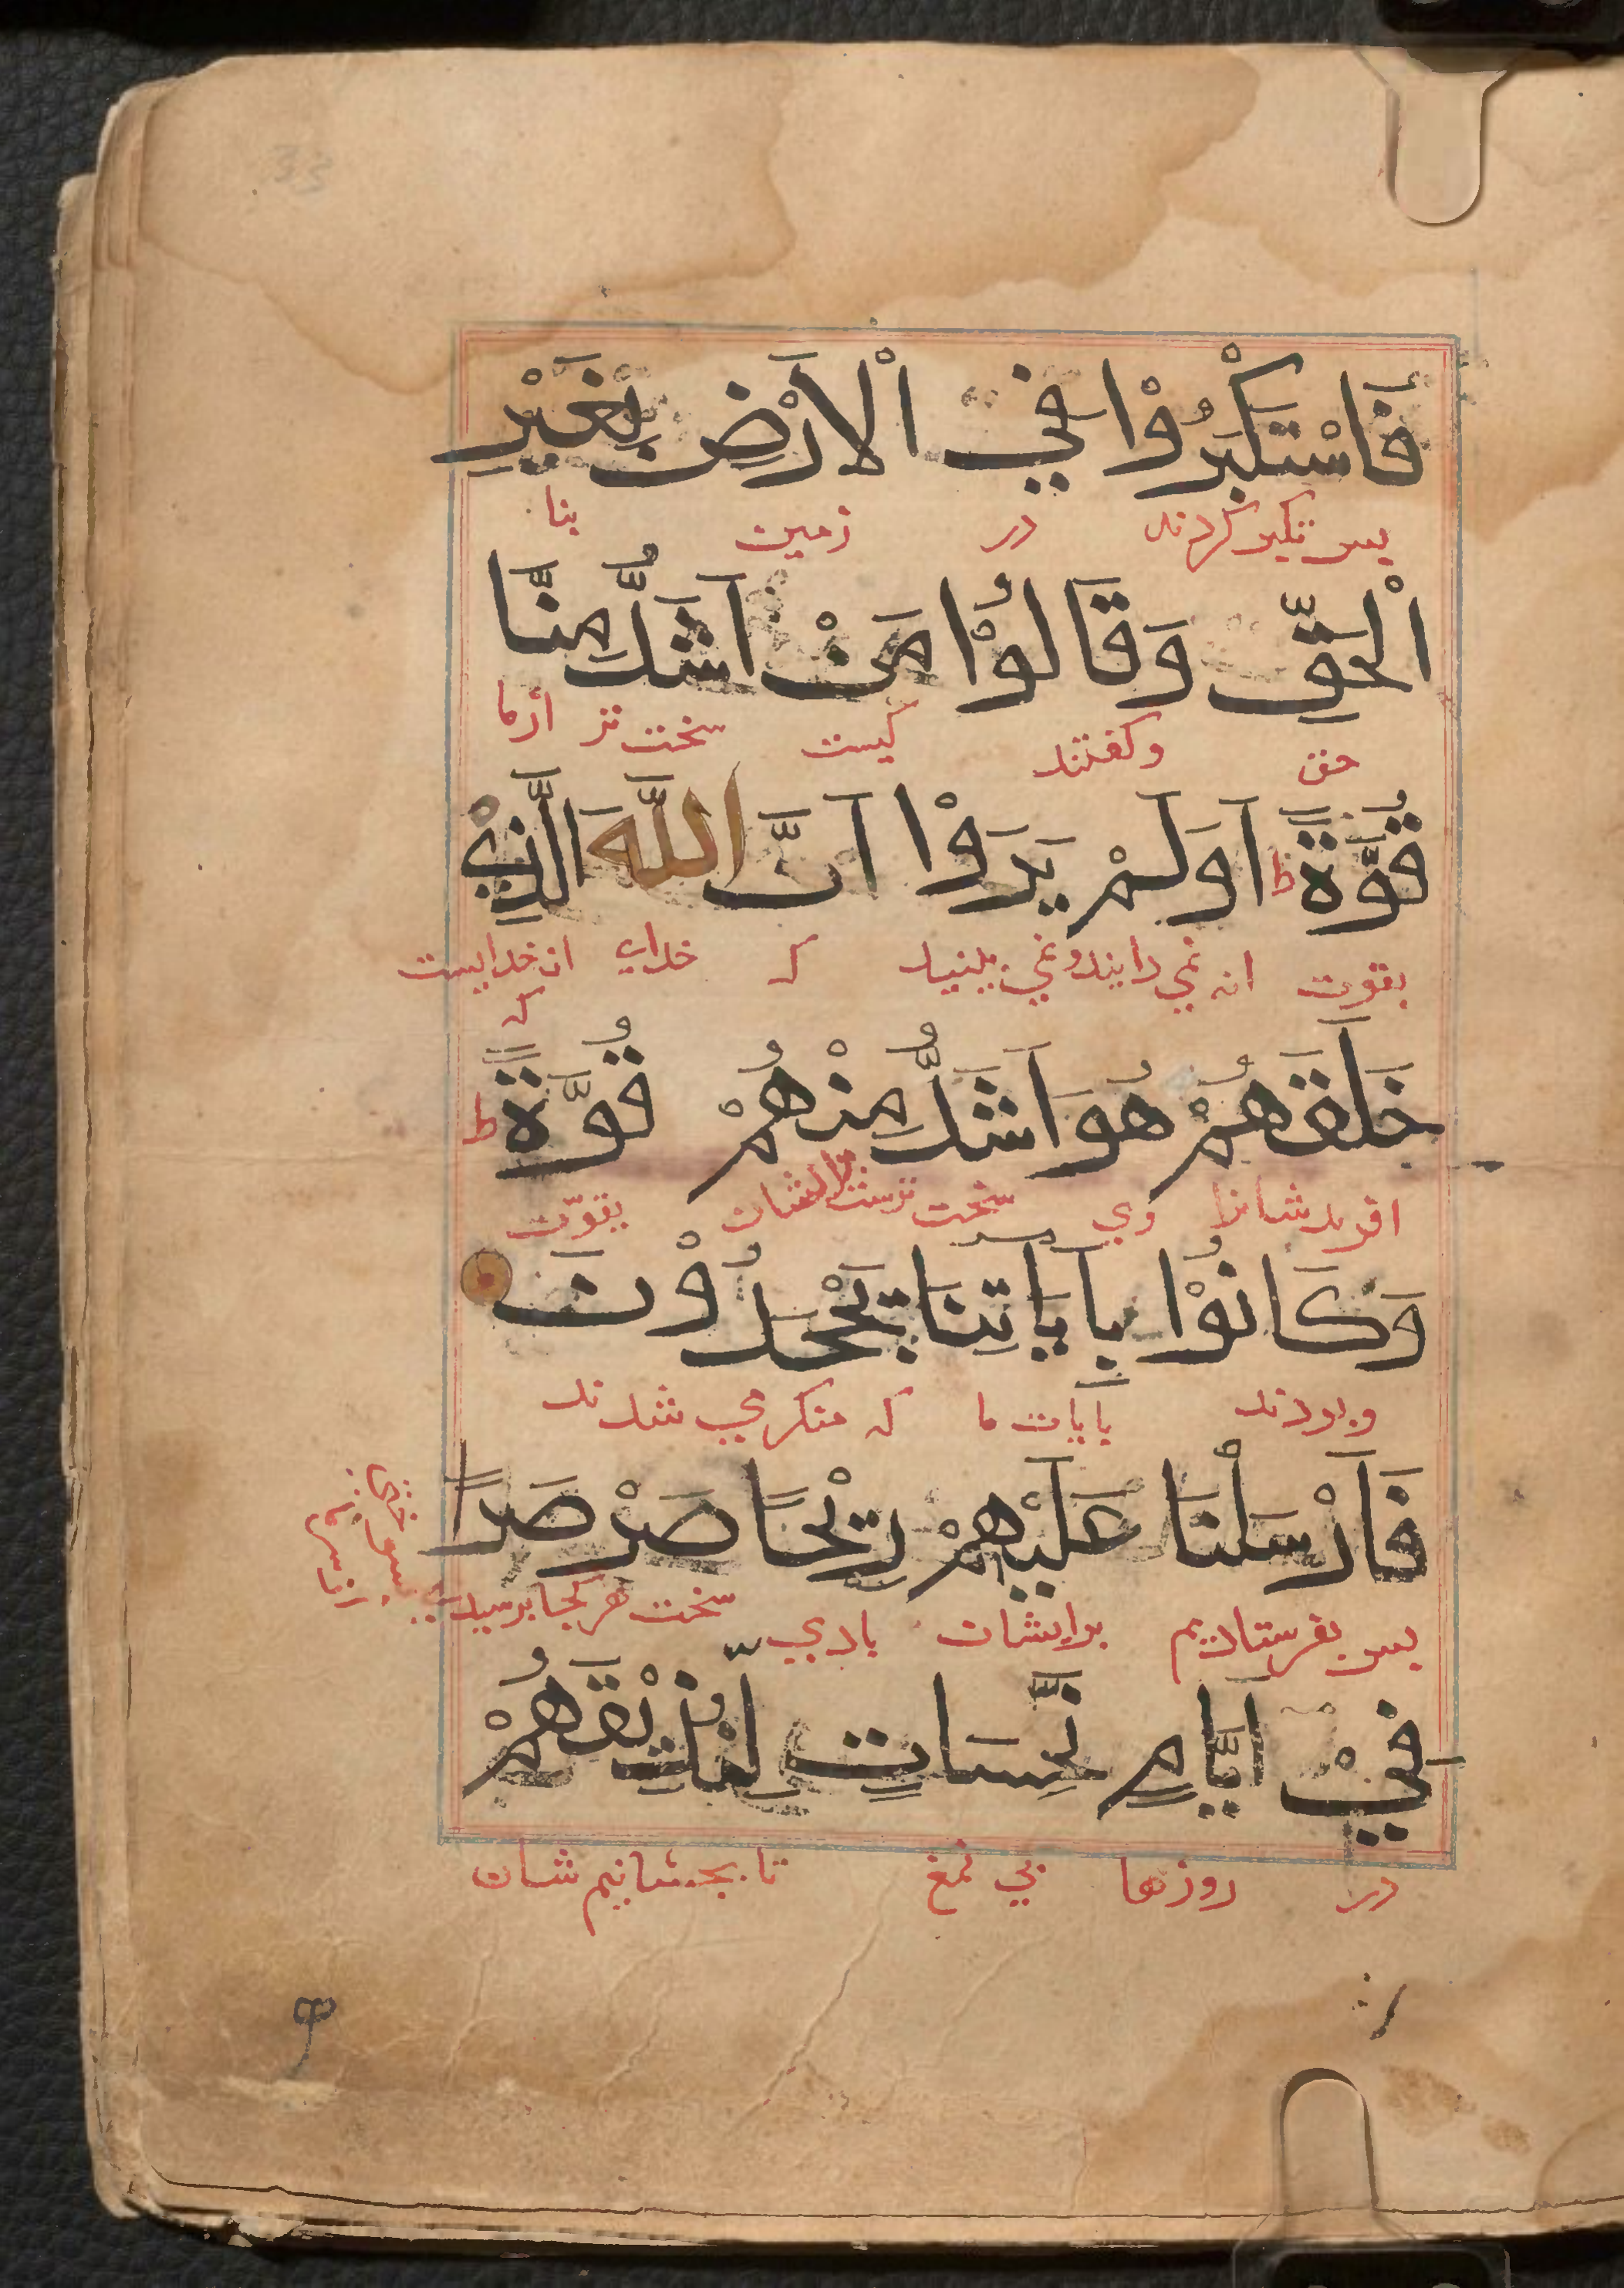 فَاسْتَكْبَرُوْا فِي الْاَرْضِ بِغَيْرِ
پس تکبر کردند در زمین بنا
الْحَقِّ وَقَالُوْا مَنْ اَشَدُّ مِنَّا
حق وکفتند کیست سخت تر ازما
قُوَّةً ط اَوَلَمْ يَرَوْا اَنَّ اللّٰهَ الَّذِيْ
بقوت انه نمي دانند ونمي بینید که خداي ان خدایست که
خَلَقَهُمْ هُوَ اَشَدُّ مِنْهُمْ قُوَّةً ط
افریدشانرا وي سخت ترست بقوّت
وَكَانُوْا بِاٰيَاتِنَا يَجْحَدُوْنَ
وبودند بایات ما که منکر مي شدند
فَاَرْسَلْنَا عَلَيْهِمْ رِيْحًا صَرْصَرًا
پس بفرستادیم برایشان بادي سخت هر کجا برسید
فِيْ اَيَّامٍ نَّحِسَاتٍ لِّنُذِيْقَهُمْ
در روزها بي نمغ تا بچشانیم شان